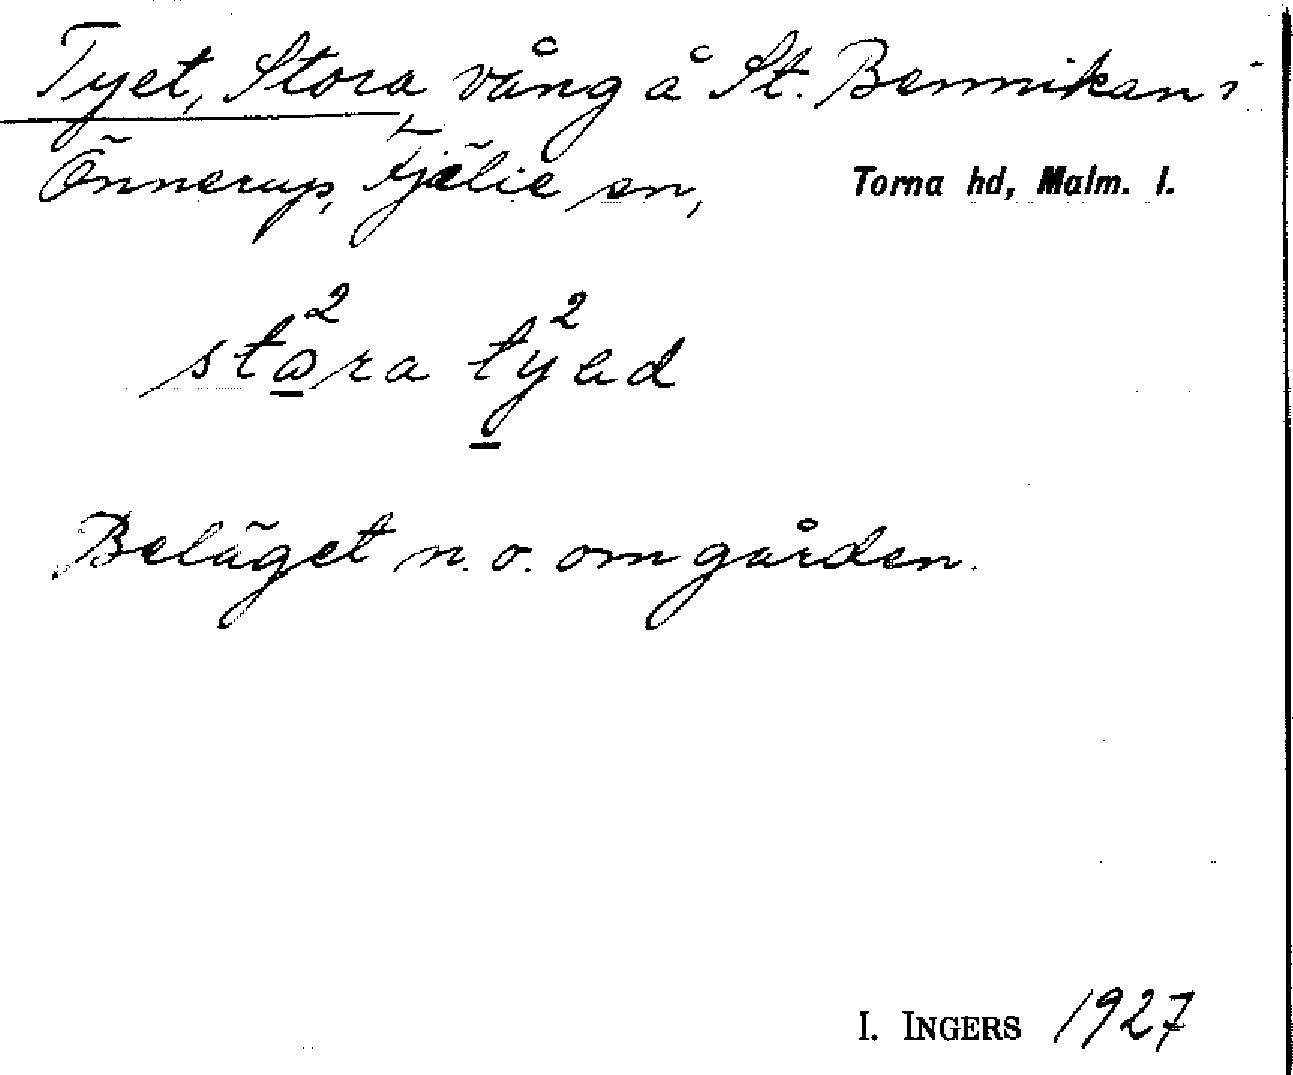 Tyet, Stora vång å St. Bennikan i
Önnerup, Fjelie sn, Torna hd, Malm. l.
2 2
stɷra tyəd
Beläget n. o. om gården.
I. INGERS 1927